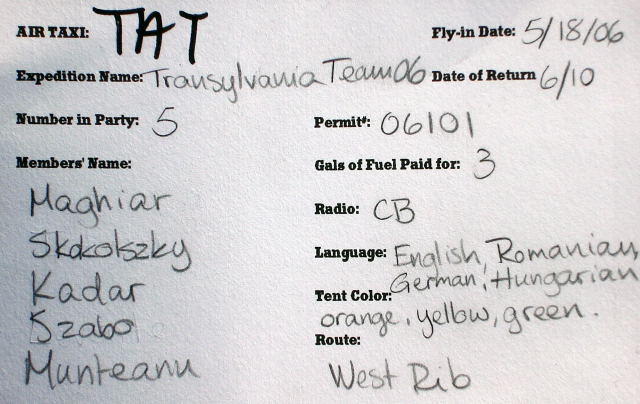 AIR TAXI: TAT Fly-in Date: 5/18/06
Expedition Name: Transylvania Team 06 Date of Return 6/10
Number in Party: 5 Permit#: 06101
Members' Name: Gals of Fuel Paid for: 3
Maghiar Radio: CB
Skokolszky Language: English, Romanian,
German, Hungarian
Kadar Tent Color:
Szabo orange, yellow, green.
Route:
Munteanu West Rib